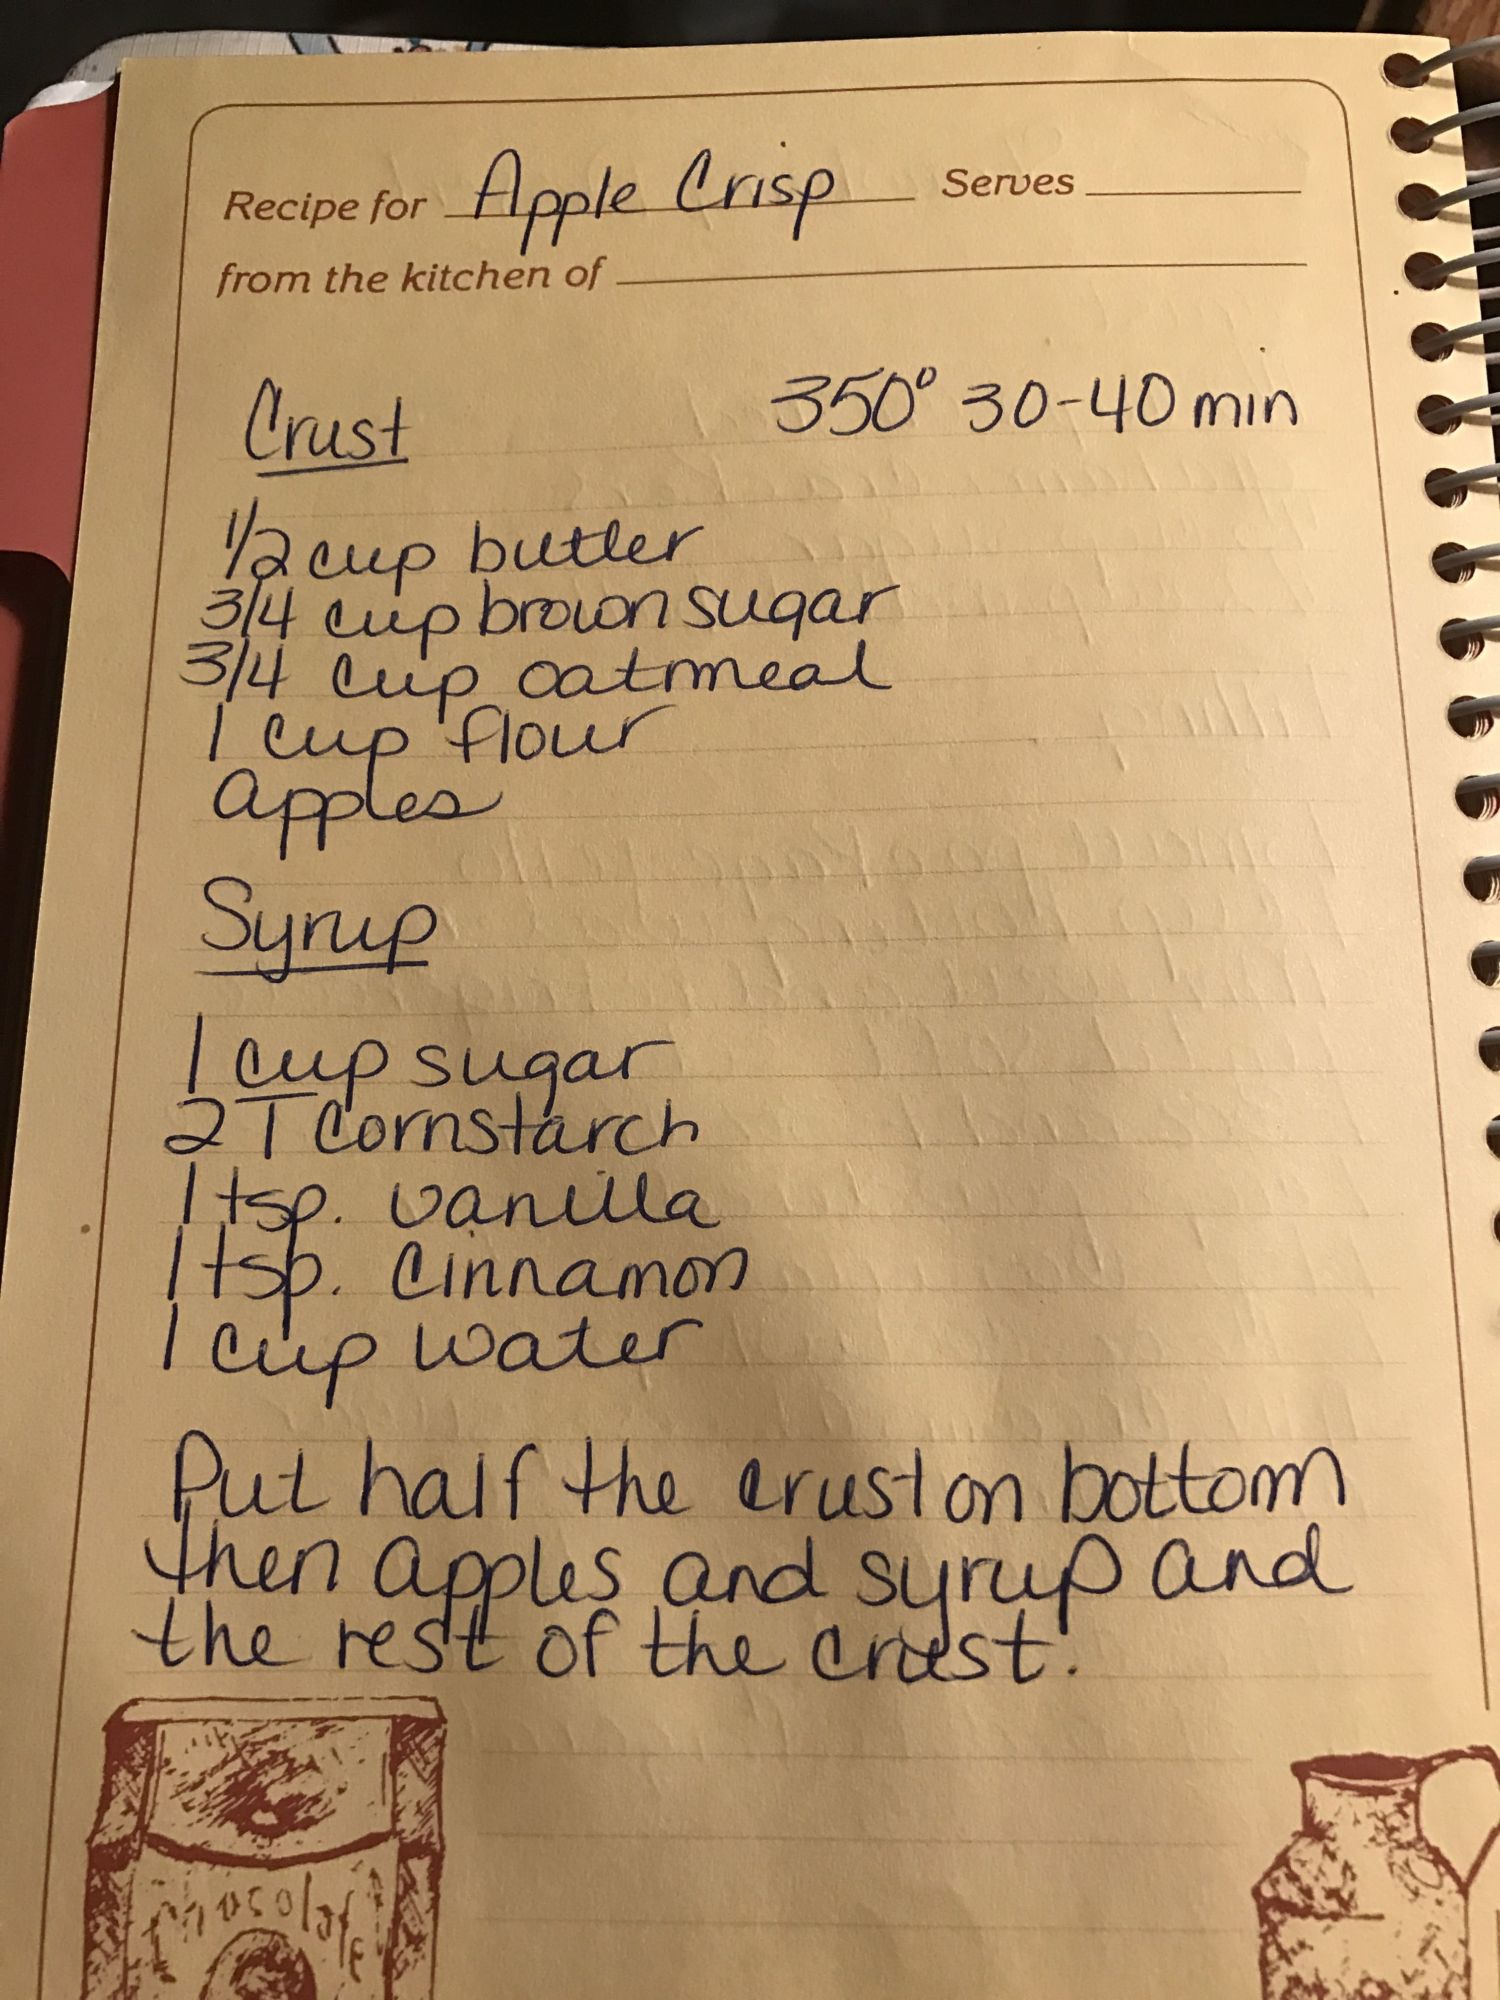 Recipe for Apple Crisp Serves
from the kitchen of
Crust 350° 30-40 min
1/2 cup butter
3/4 cup brown sugar
3/4 cup oatmeal
1 cup flour
apples
Syrup
1 cup sugar
2 T cornstarch
1 tsp. vanilla
1 tsp. cinnamon
1 cup water
Put half the crust on bottom
then apples and syrup and
the rest of the crust.